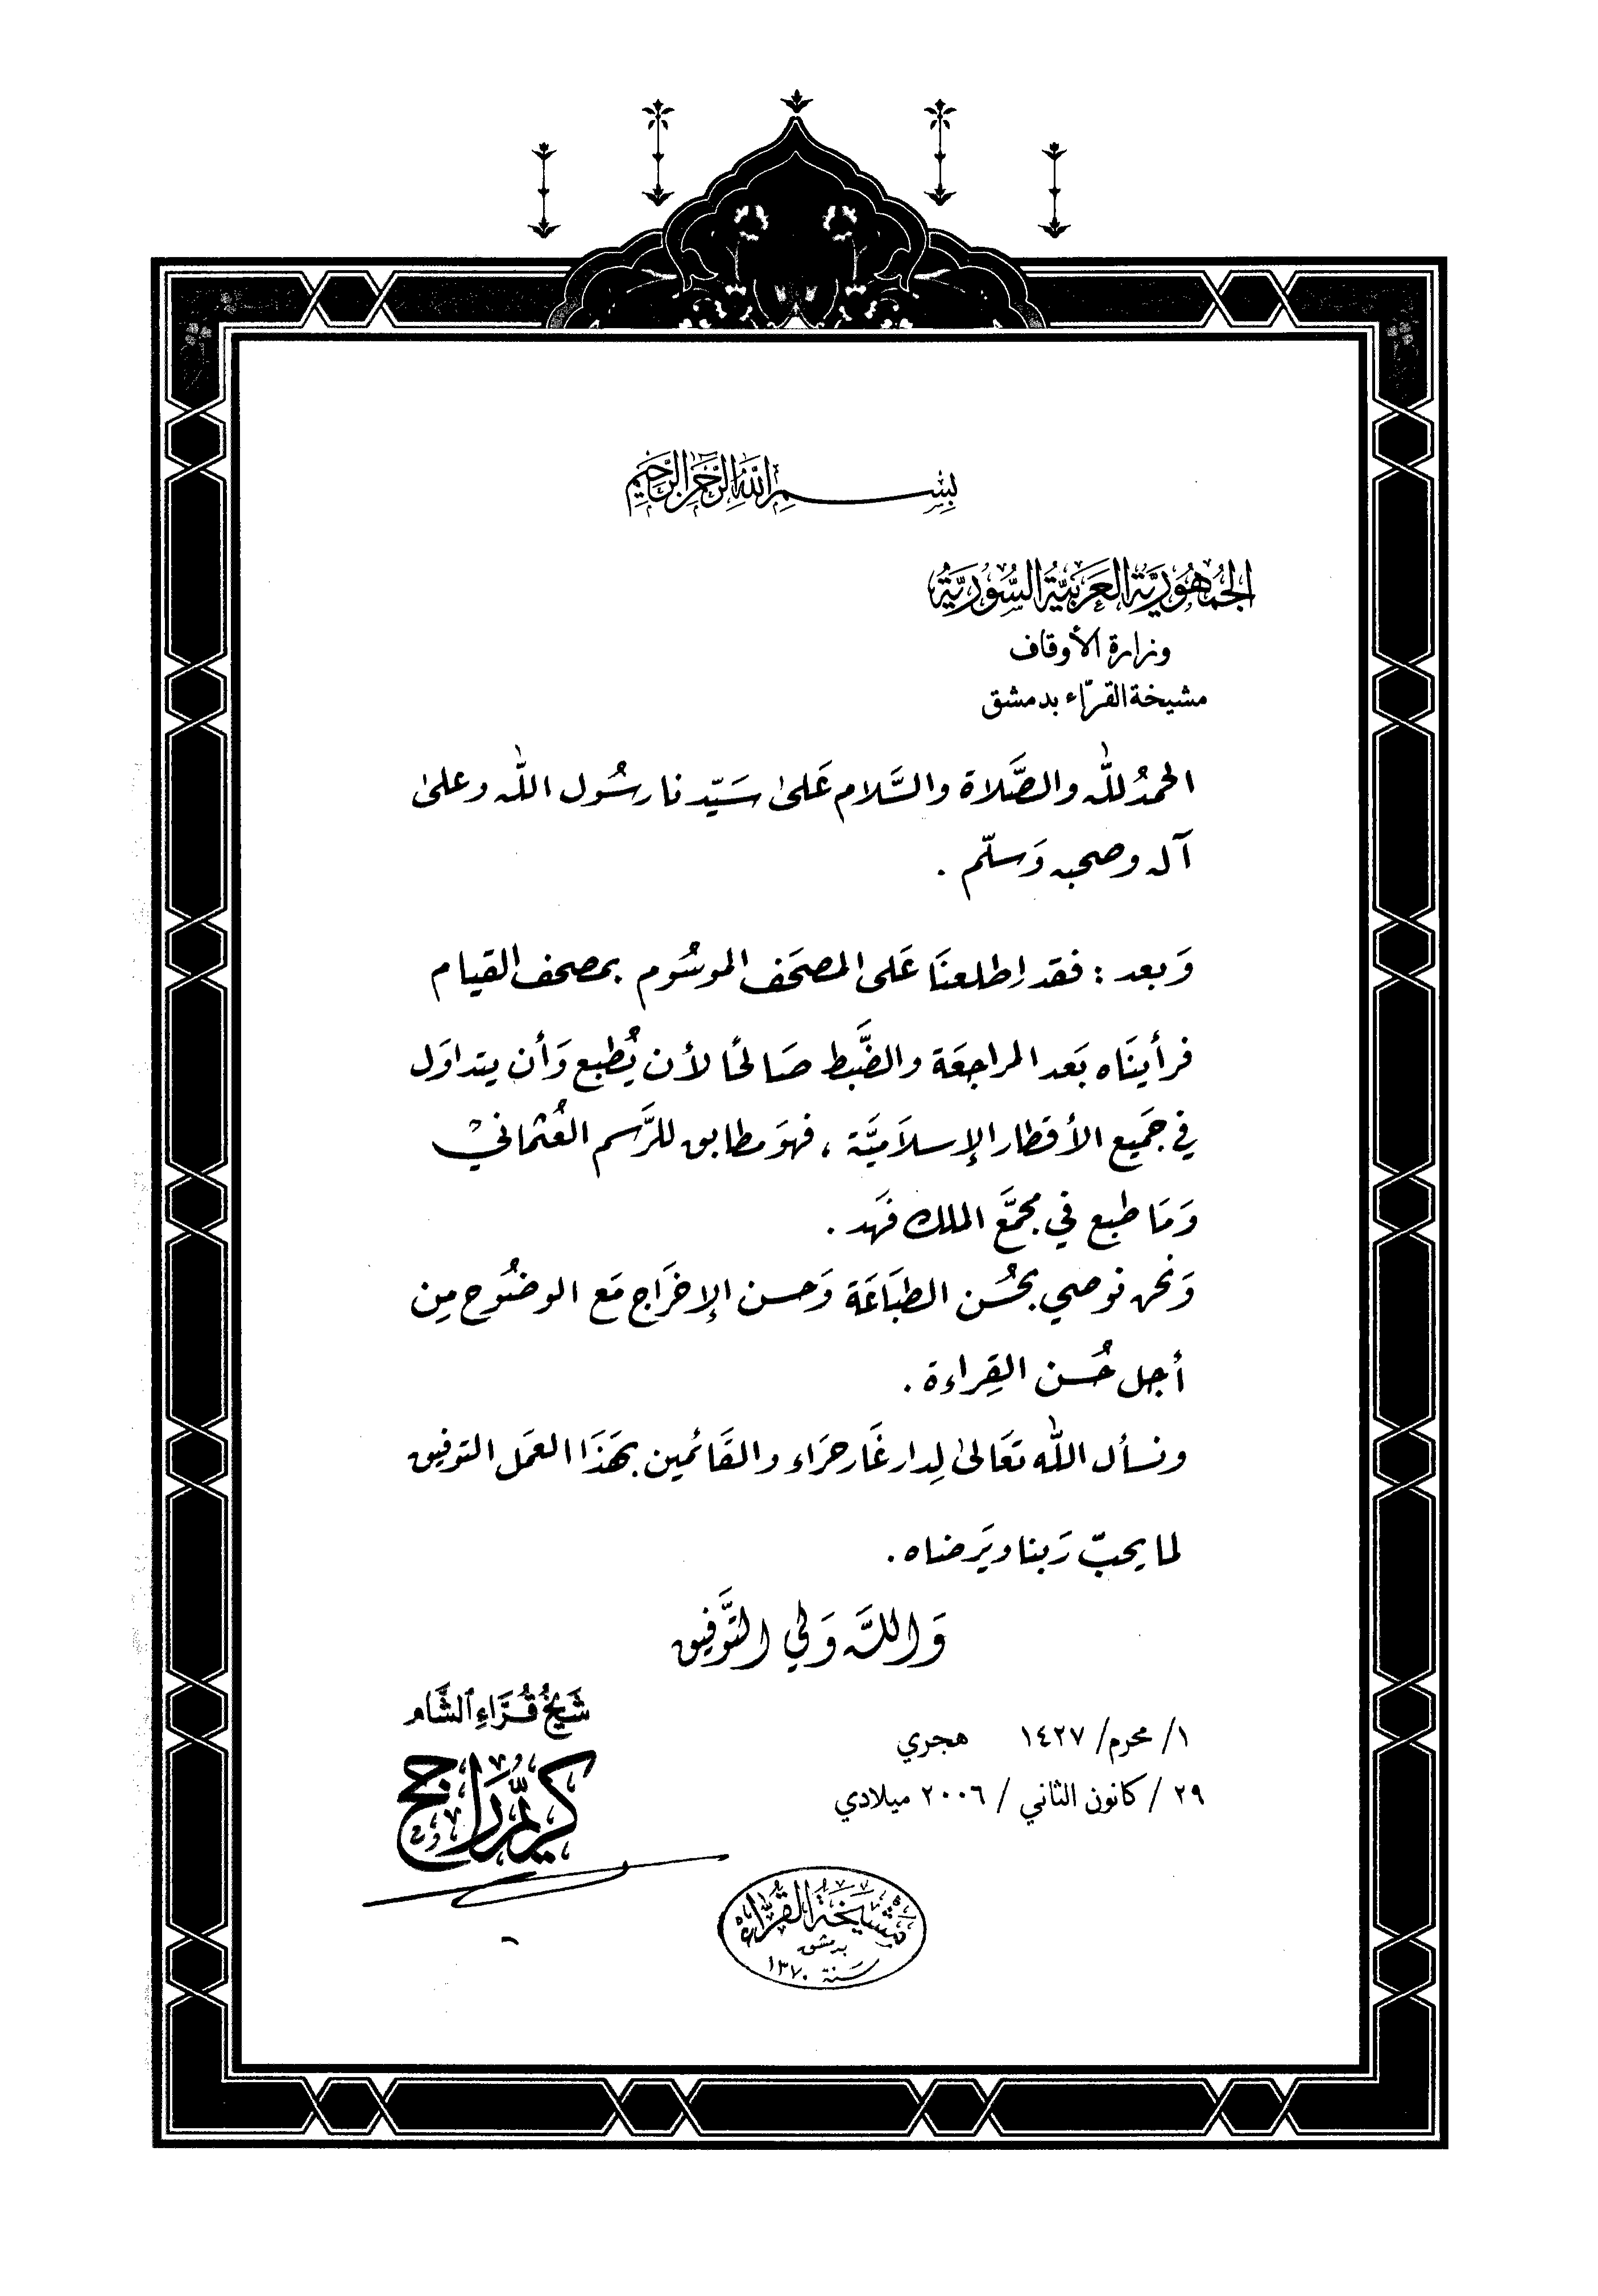 بِسْمِ اللَّهِ الرَّحْمَنِ الرَّحِيمِ
الجُمْهُورِيَّة العَرَبِيَّة السُّورِيَّة
وزارة الأوقاف
مشيخة القرّاء بدمشق
الحمدُ للّٰه والصَّلاة والسَّلام عَلىٰ سَيّدنا رسُول اللّٰه وعلىٰ
آله وصحبه وَسلّم .
وَبعد : فقد اِطلعنَا عَلى المصحَف الموسُوم بمصحف القيام
فرأينَاه بَعد المراجعَة والضَّبط صَالحًا لأن يُطبع وَأن يتداوَل
في جَميع الأقطار الإسلاَميَّة ، فهوَ مطابق للرَّسم العُثمانيْ
وَمَا طبع في مجمَّع الملك فَهد .
وَنحن نوصي بحُسن الطبَاعَة وَحسن الإخرَاج مَع الوضُوح مِن
أجل حُسن القِراءة .
ونسأل اللّٰه تعَالىٰ لِدار غَار حرَاء والقَائمين بهَذَا العمَل التوفيق
لما يحبّ رَبنا ويَرضاه .
وَاللَّه وَلي التَّوفيق
شَيْخُ قُرَّاءِ الشَّام
كريّم رَاجح
١/ محرم/ ١٤٢٧ هجري
٢٩ / كانون الثاني / ٢٠٠٦ ميلادي
مَشيَخَةُ القُرَّاء
بدمشق
سَنة ١٣٧٠